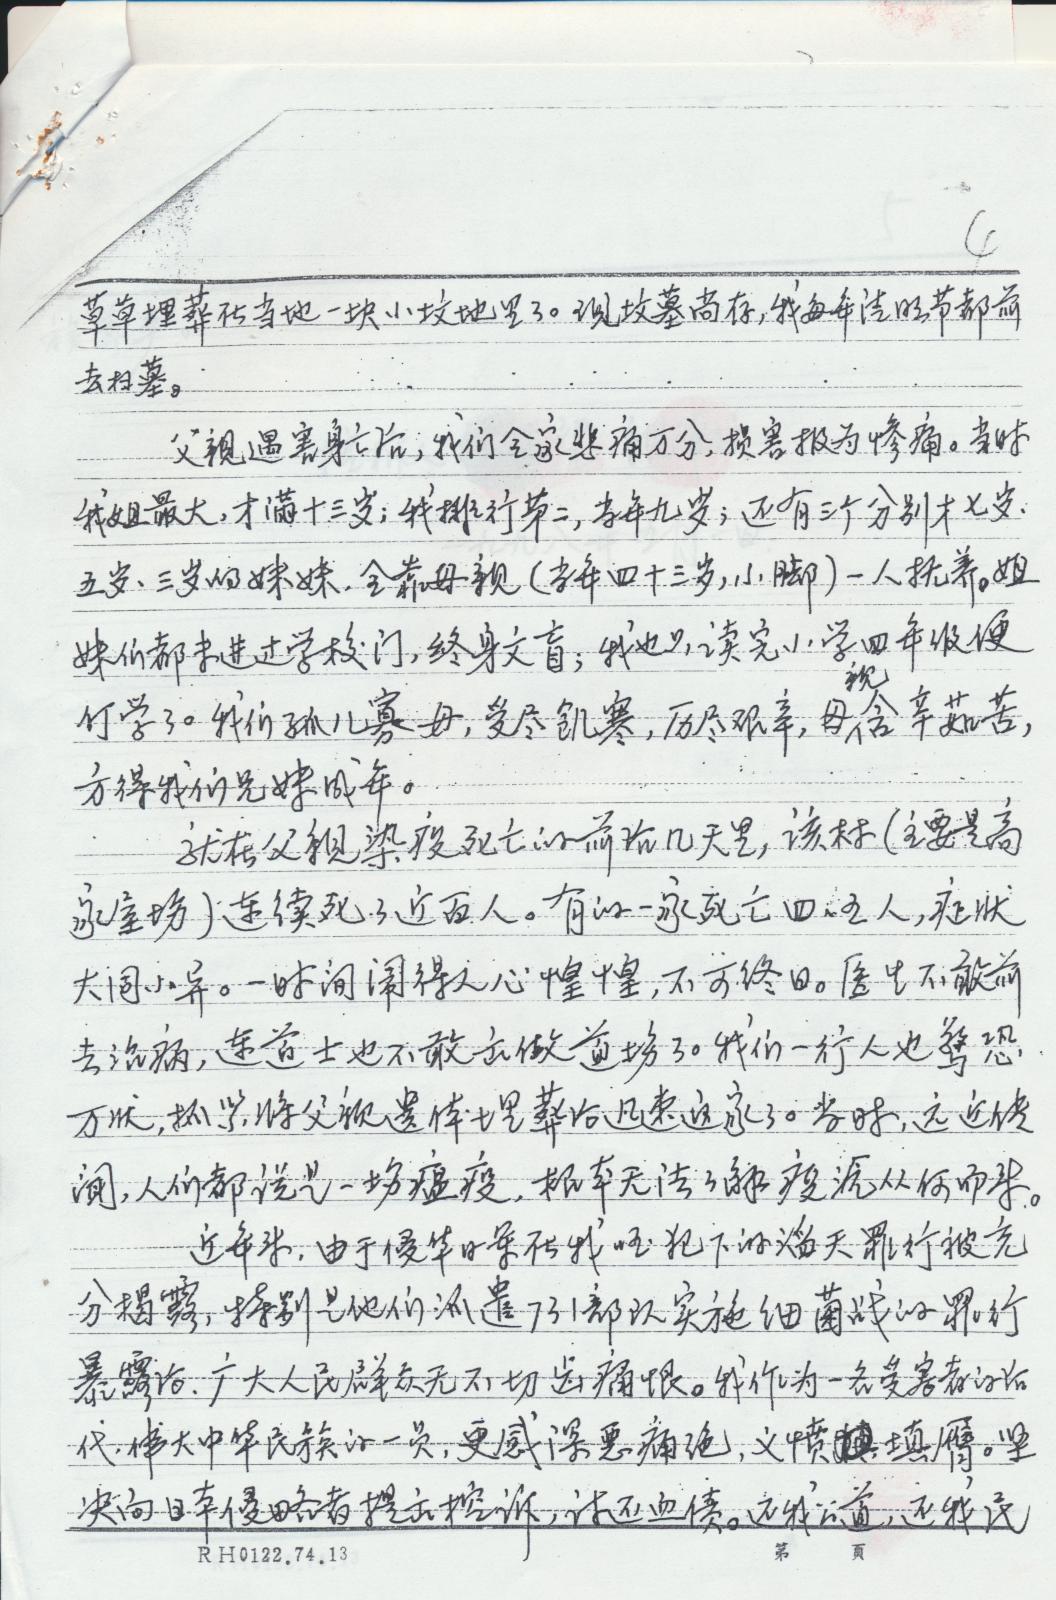 4
草草埋葬在当地一块小坟地里了。现坟墓尚存，我每年清明节都前
去扫墓。
父親遇害身亡后，我们全家悲痛万分，损害极为惨痛。当时
我姐最大，才满十三岁；我排行第二，当年九岁；还有三个分别才七岁、
五岁、三岁的妹妹，全靠母親（当年四十三岁，小脚）一人抚养。姐
妹们都未进过学校门，终身文盲；我也只读完小学四年级便
停学了。我们孤儿寡母，受尽飢寒，历尽艰辛，母親含辛茹苦，
方得我们兄妹成年。
就在父親染疫死亡的前后几天里，该村（主要是高
家屋场）连续死了近百人。有的一家死亡四、五人，症状
大同小异。一时间闹得人心惶惶，不可终日。医生不敢前
去治病，连道士也不敢去做道场了。我们一行人也驚恐
万状，抓紧将父親遗体埋葬后迅速返家了。当时，远近传
闻，人们都说是一场瘟疫，根本无法了解疫源从何而来。
近年来，由于侵华日军在我国犯下的滔天罪行被充
分揭露，特别是他们派遣731部队实施细菌战的罪行
暴露后，广大人民群众无不切齿痛恨。我作为一名受害者的后
代，伟大中华民族的一员，更感深恶痛绝，义愤填膺。坚
决向日本侵略者提出控诉，讨还血债。还我公道，还我民
RH0122.74.13 第 页